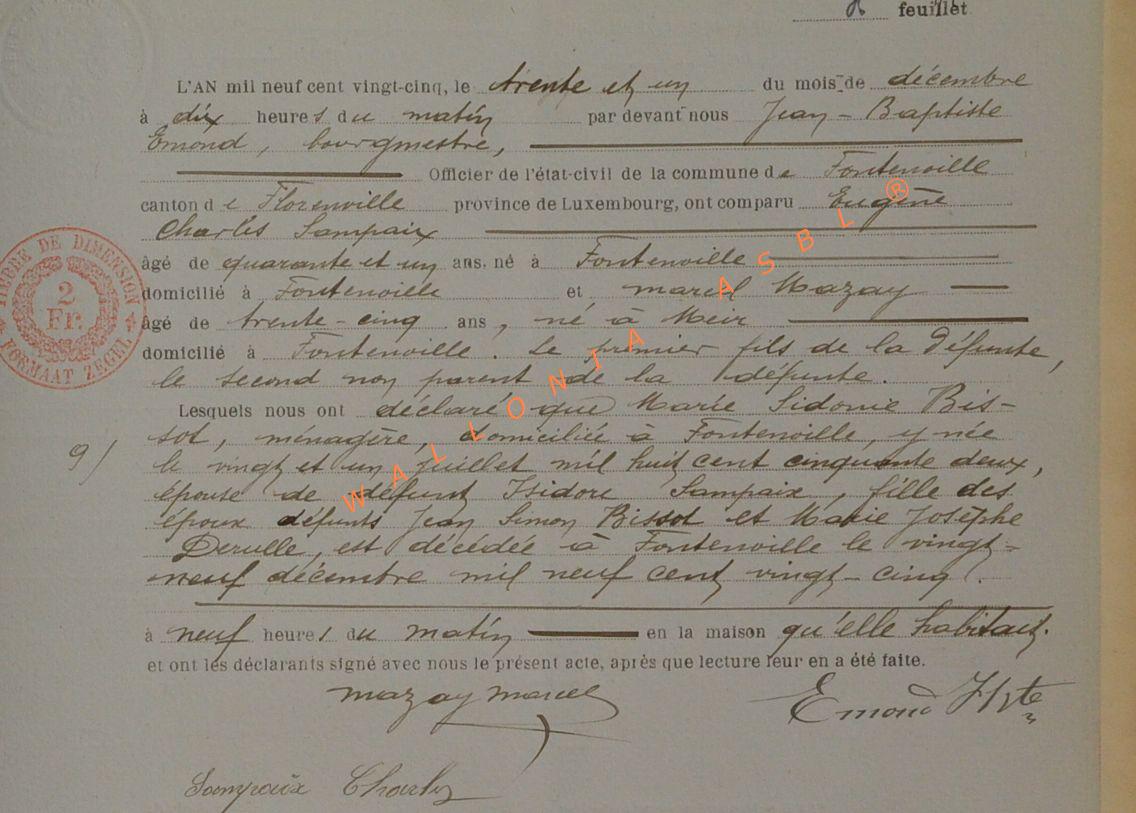 feuillet
L'AN mil neuf cent vingt-cinq, le trente et un du mois de décembre
à dix heures du matin par devant nous Jean-Baptiste
Emond, bourgmestre,
Officier de l'état-civil de la commune de Fontenoille
canton de Florenville province de Luxembourg, ont comparu Eugène
Charles Sampaix
âgé de quarante et un ans, né à Fontenoille
domicilié à Fontenoille et Marcel Mazay
âgé de trente-cinq ans, né à Meix
domicilié à Fontenoille. Le premier fils de la défunte,
le second non parent de la défunte.
Lesquels nous ont déclaré que Marie Sidonie Bis-
sot, ménagère, domiciliée à Fontenoille, y née
9/ le vingt et un juillet mil huit cent cinquante deux,
épouse de défunt Isidore Sampaix, fille des
époux défunts Jean Simon Bissot et Marie Josèphe
Derulle, est décédée à Fontenoille le vingt-
neuf décembre mil neuf cent vingt-cinq.
à neuf heures du matin en la maison qu'elle habitait.
et ont les déclarants signé avec nous le présent acte, après que lecture leur en a été faite.
Mazay Marcel
Emond
Sampaix Charles
TIMBRE DE DIMENSION
2
Fr.
FORMAAT ZEGEL
WALLONIA ASBL ®